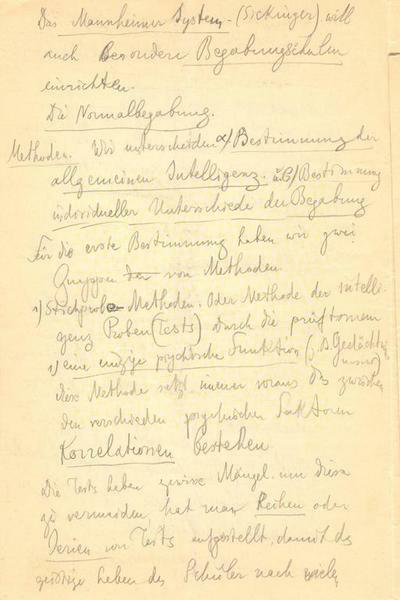 Das Mannheimer System - (Sickinger) will
auch besondere Begabungsschulen
einrichten.
Die Normalbegabung.
Methoden. Wir unterscheiden α) Bestimmung der
allgemeinen Intelligenz. u. β) Bestimmung
individueller Unterschiede der Begabung
Für die erste Bestimmung haben wir zwei
Gruppen der von Methoden
1) Stichprobe Methoden. Oder Methode der intelli-
genz Proben (Tests) durch die prüft man
eine einzige psychische Funktion (z.B. Gedächtn
diese Methode setzt immer voraus das zwischen
den verschieden psychischen Faktoren
Korrelationen bestehen
Die Tests haben gewisse Mängel. um diese
zu vermeiden, hat man Reihen oder
Serien von Tests aufgestellt, damit das
geistige Leben des Schüler nach viele